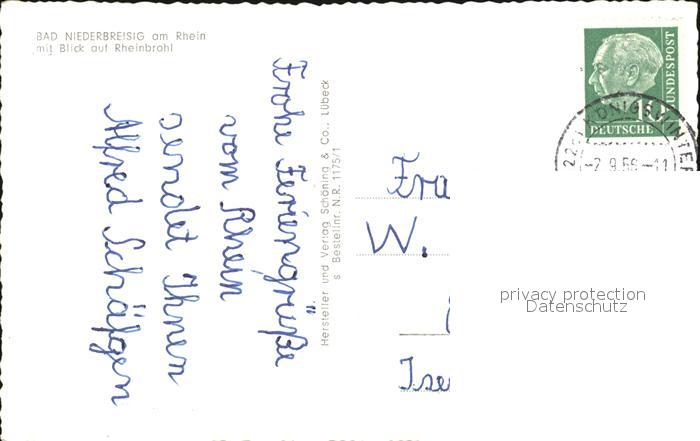 BAD NIEDERBREISIG am Rhein
mit Blick auf Rheinbrohl
Frohe Feriengrüße
vom Rhein
sendet Ihnen
Alfred Schäfgen
Hersteller und Verlag Schöning & Co., Lübeck
s Bestellnr. N.R. 1175/1
BUNDESPOST
10
DEUTSCHE
(22c) KÖNIGSWINTER
-2.9.56-11
Fra
W.
Ise
privacy protection
Datenschutz